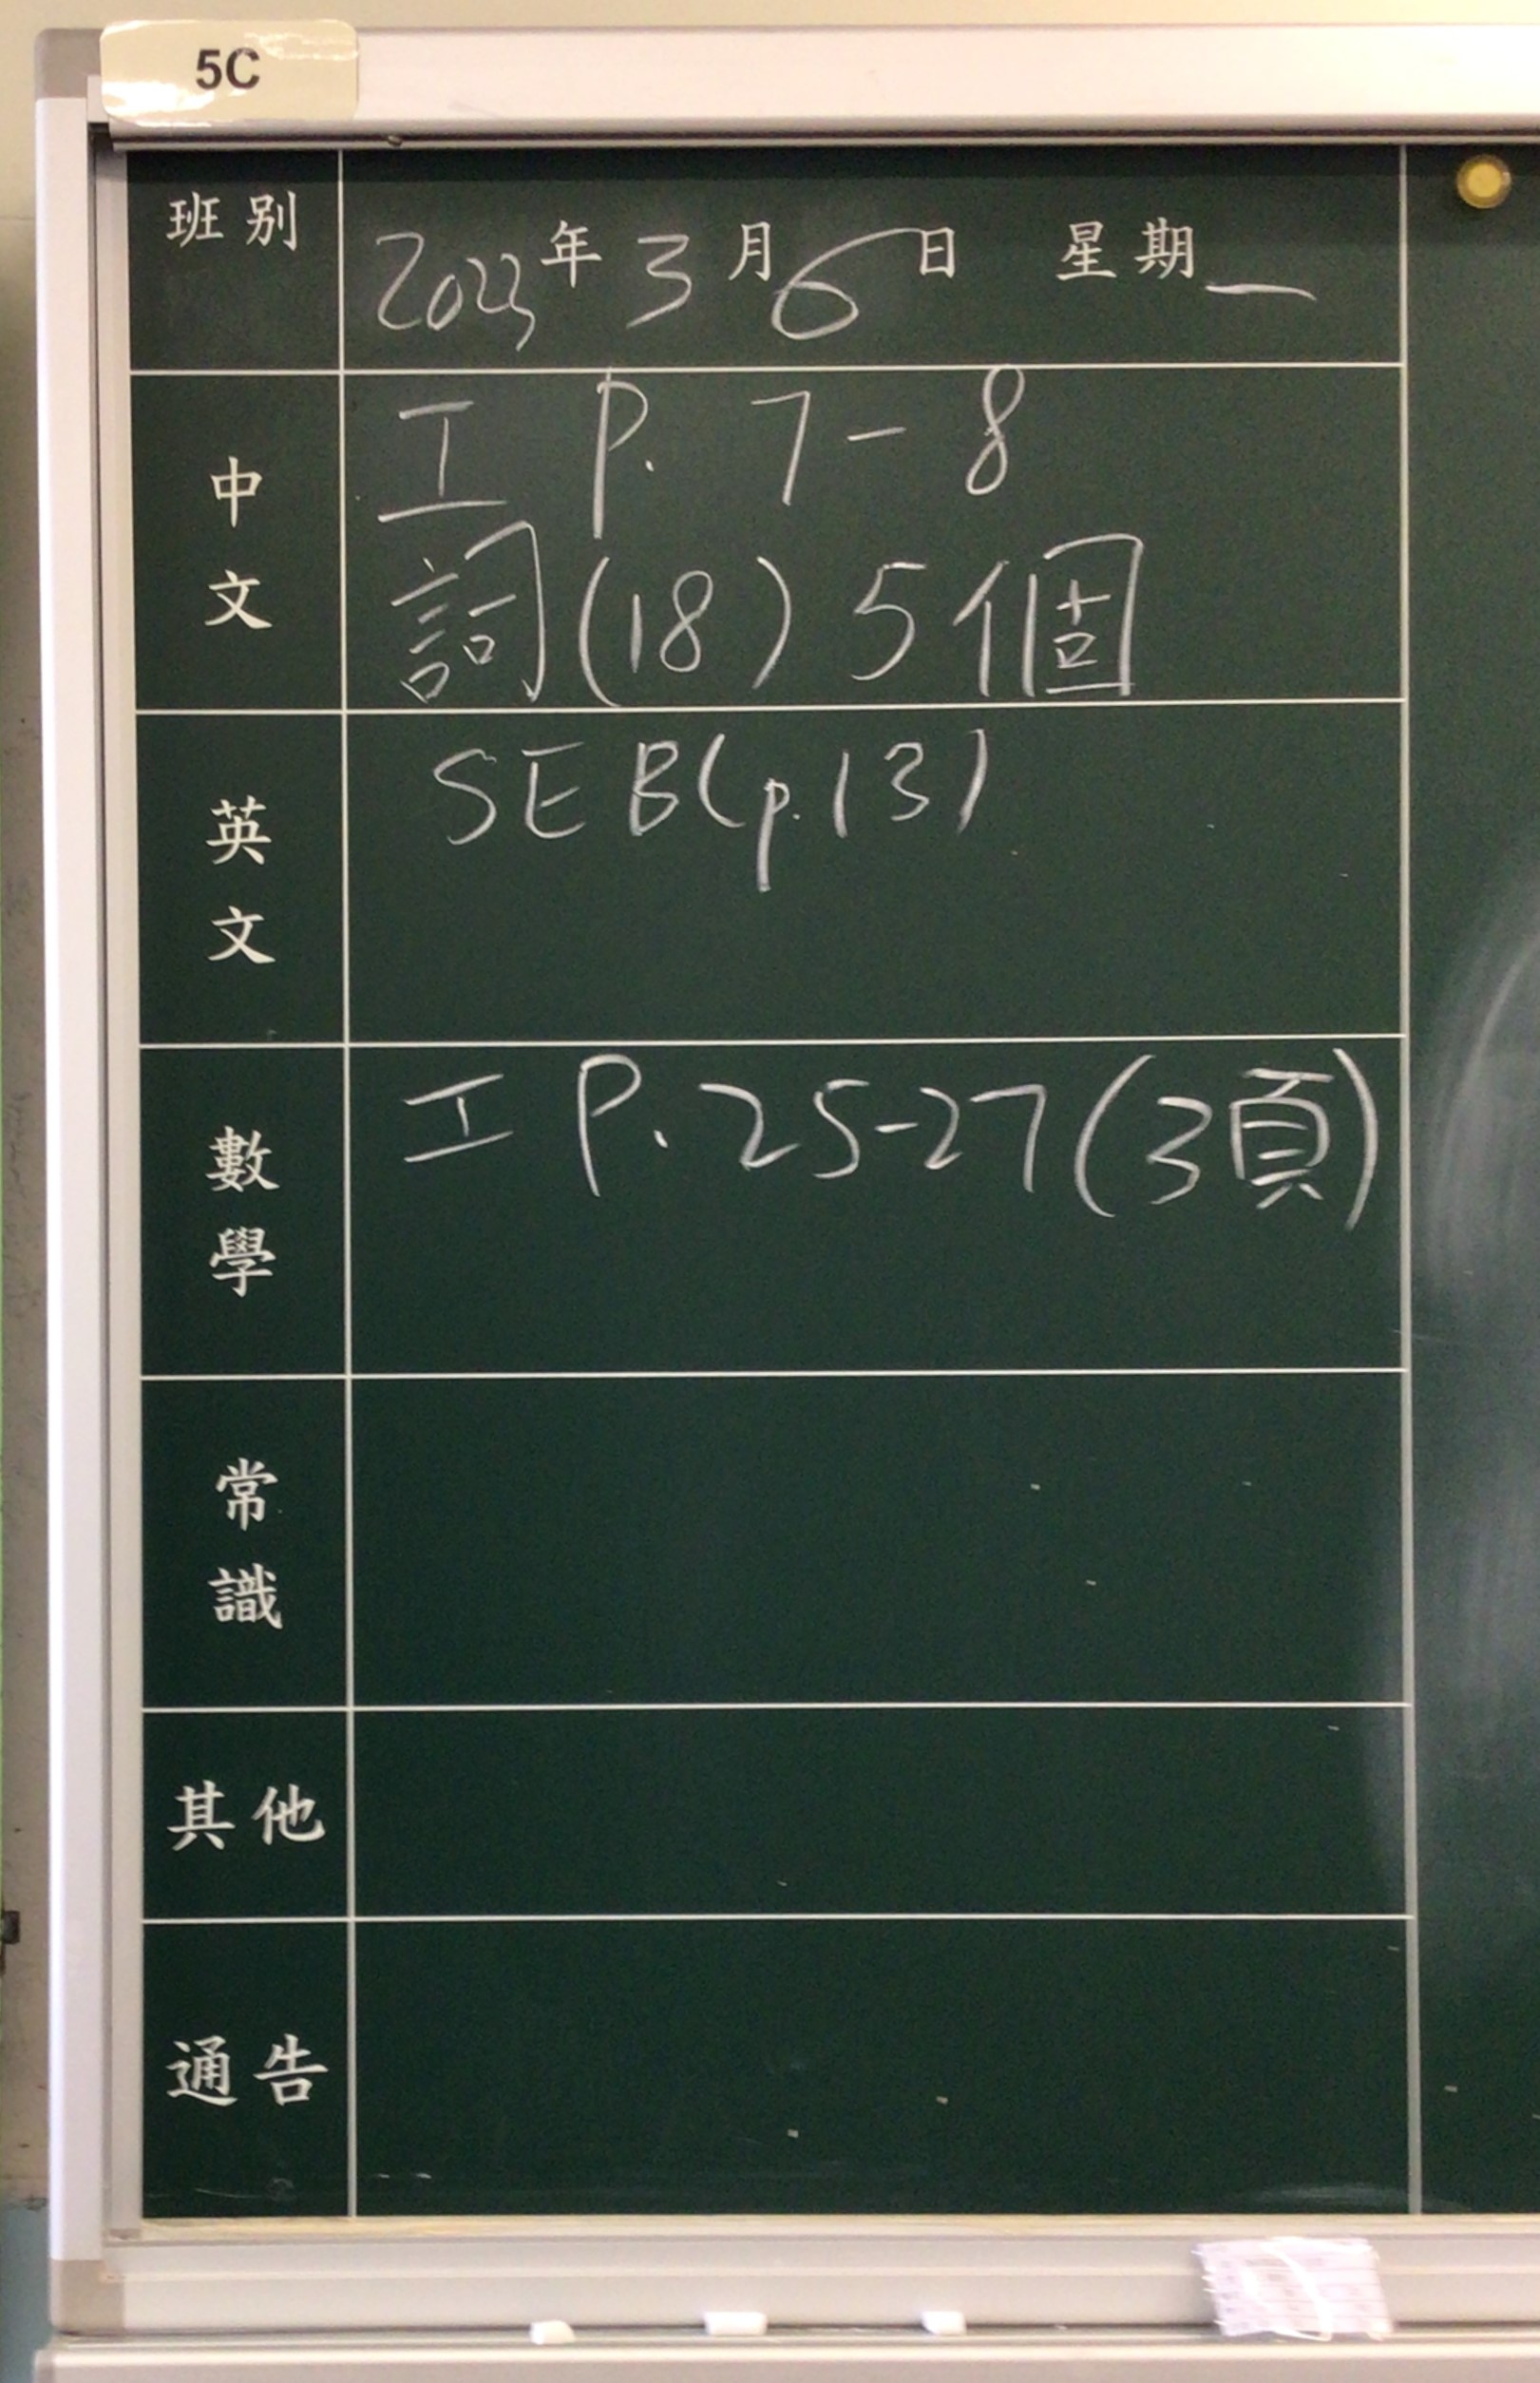 5C
班別 2023年3月6日 星期一
中文 工 P. 7-8
詞(18) 5個
英文 SEB(p.13)
數學 工 P. 25-27(3頁)
常識
其他
通告